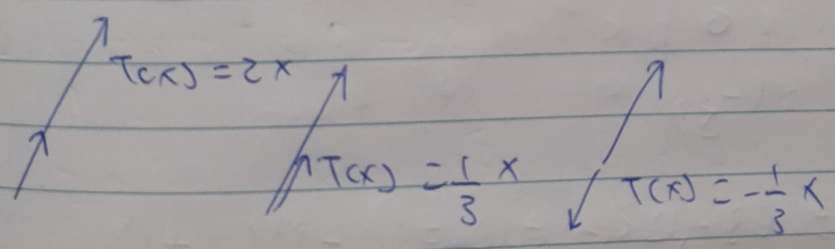 T(x) = 2x
T(x) = 1/3 x
T(x) = -1/3 x